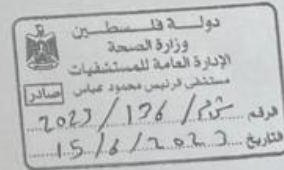 دولة فلسطين
وزارة الصحة
الإدارة العامة للمستشفيات
مستشفى الرئيس محمود عباس
صادر
الرقم 2023 / 136 /
التاريخ 15 / 6 / 2023